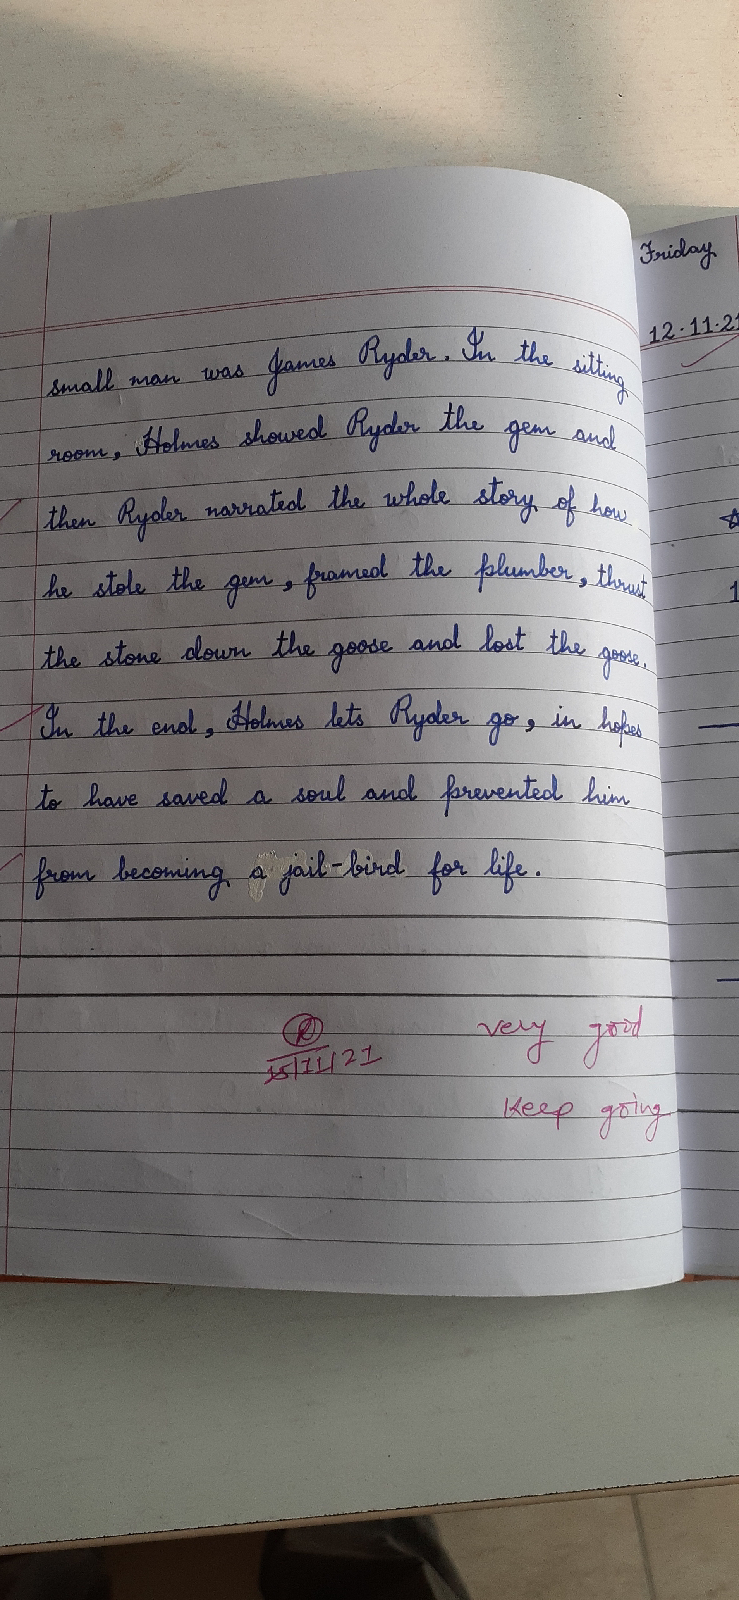 small man was James Ryder. In the sitting
room, Holmes showed Ryder the gem and
then Ryder narrated the whole story of how
he stole the gem, framed the plumber, thrust
the stone down the goose and lost the goose.
In the end, Holmes lets Ryder go, in hopes
to have saved a soul and prevented him
from becoming a jail-bird for life.
15/11/21
very good
Keep going
Friday
12.11.21
1